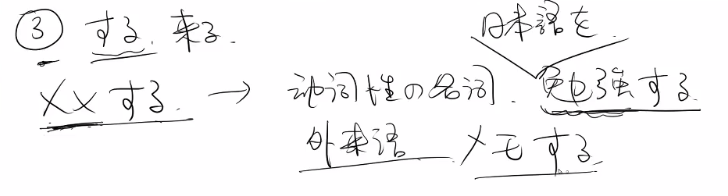 ③ する. 来る.
日本語を.
XX する. → 动词性の名词. 勉強する.
外来語 メモする.